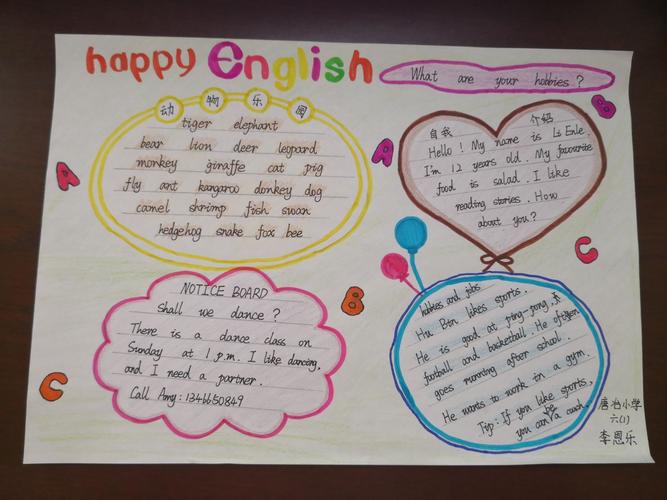 happy English
What are your hobbies ?
动 物 乐 园
tiger elephant
bear lion deer leopard
monkey giraffe cat pig
fly ant kangaroo donkey dog
camel shrimp fish swan
hedgehog snake fox bee
自我 介绍
Hello ! My name is Li Enle.
I'm 12 years old. My favourite
food is salad. I like
reading stories. How
about you?
A
A
B
B
C
C
NOTICE BOARD
Shall we dance ?
There is a dance class on
Sunday at 1 p.m. I like dancing,
and I need a partner.
Call Amy: 1346650849
hobbies and jobs
Hu Bin likes sports.
He is good at ping-pong,
football and basketball. He often
goes running after school.
He wants to work in a gym.
Tip: If you like sports,
you can be a coach.
唐冶小学
六(1)
李恩乐